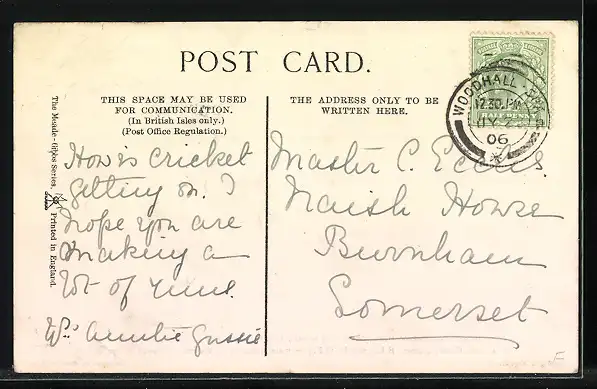 POST CARD.
THIS SPACE MAY BE USED
FOR COMMUNICATION.
(In British Isles only.)
(Post Office Regulation.)
THE ADDRESS ONLY TO BE
WRITTEN HERE.
WOODHALL SPA
12.30 PM
JY 2
06
HALF PENNY
The Mende-Gibbs Series.
Printed in England.
How is cricket
getting on. I
hope you are
making a
lot of runs.
Auntie Gussie
Master C. Eccles.
Naish House
Burnham
Somerset
F